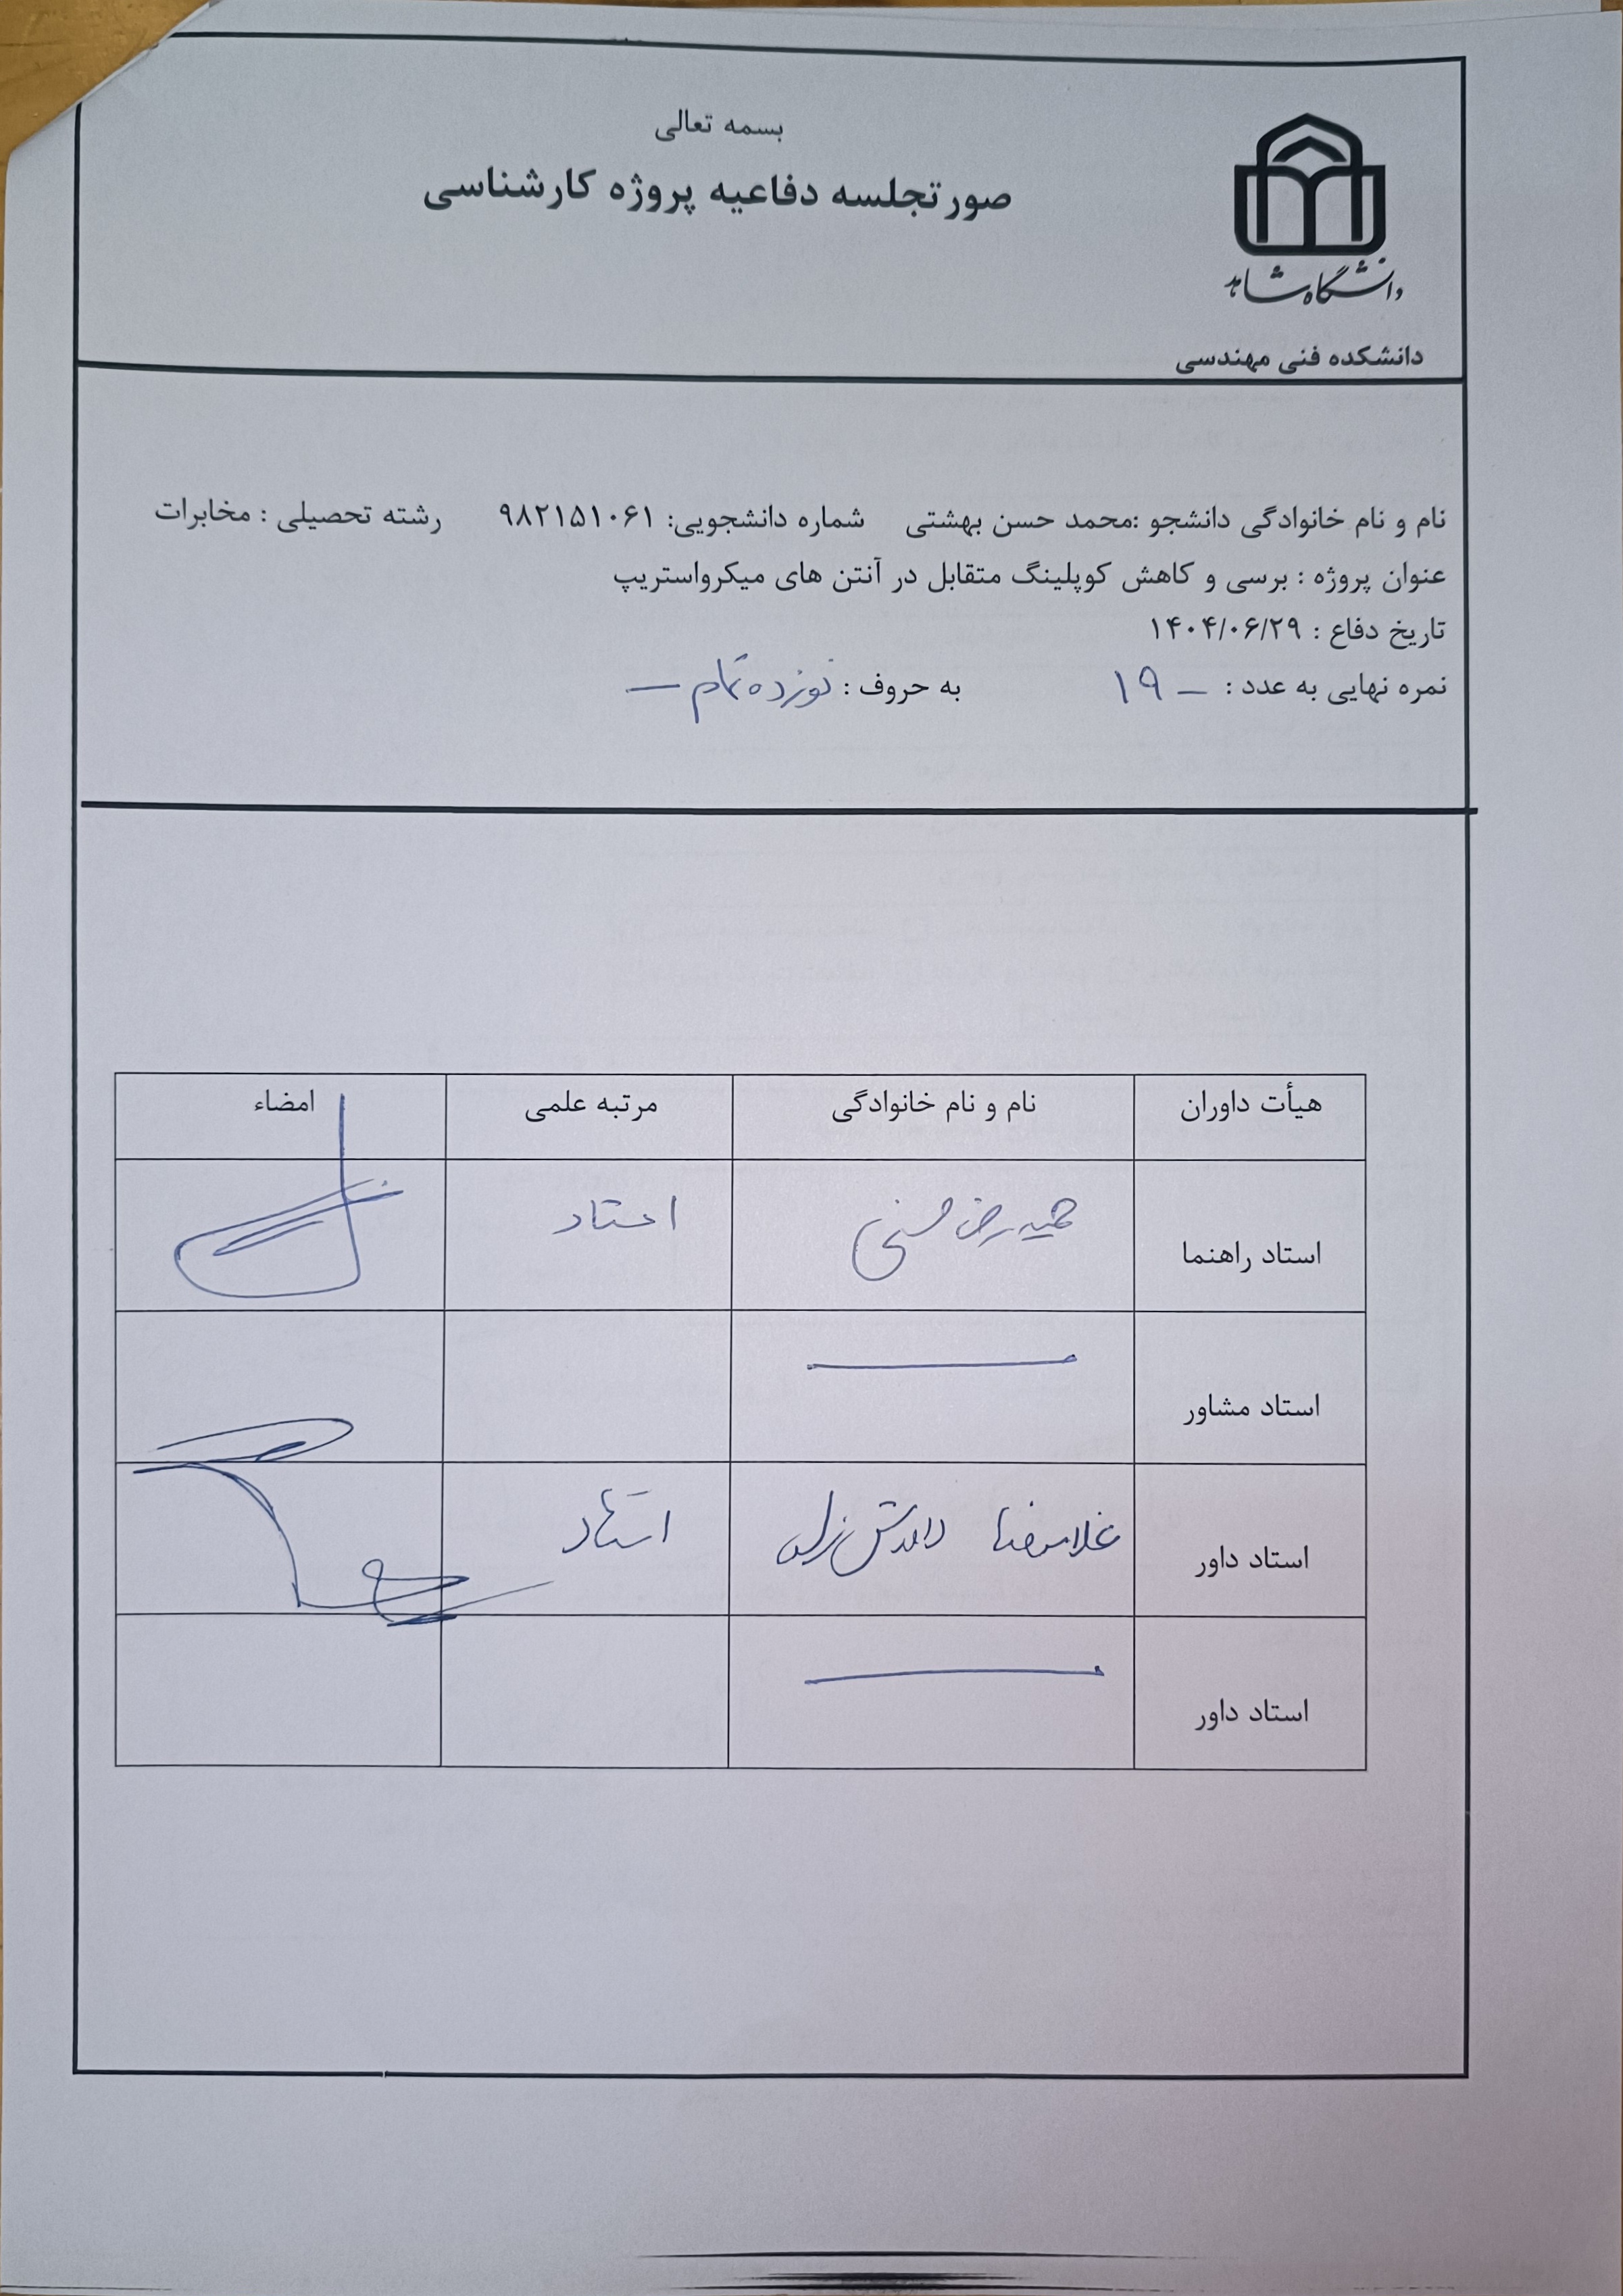 بسمه تعالی
صورتجلسه دفاعیه پروژه کارشناسی
دانشگاه شاهد
دانشکده فنی مهندسی
نام و نام خانوادگی دانشجو :محمد حسن بهشتی شماره دانشجویی: ۹۸۲۱۵۱۰۶۱ رشته تحصیلی : مخابرات
عنوان پروژه : برسی و کاهش کوپلینگ متقابل در آنتن های میکرواستریپ
تاریخ دفاع : ۱۴۰۴/۰۶/۲۹
نمره نهایی به عدد : ۱۹ – به حروف : نوزده تمام –
هیأت داوران نام و نام خانوادگی مرتبه علمی امضاء
استاد راهنما حمیدرضا حسنی استاد
استاد مشاور
استاد داور غلامرضا استاد
استاد داور